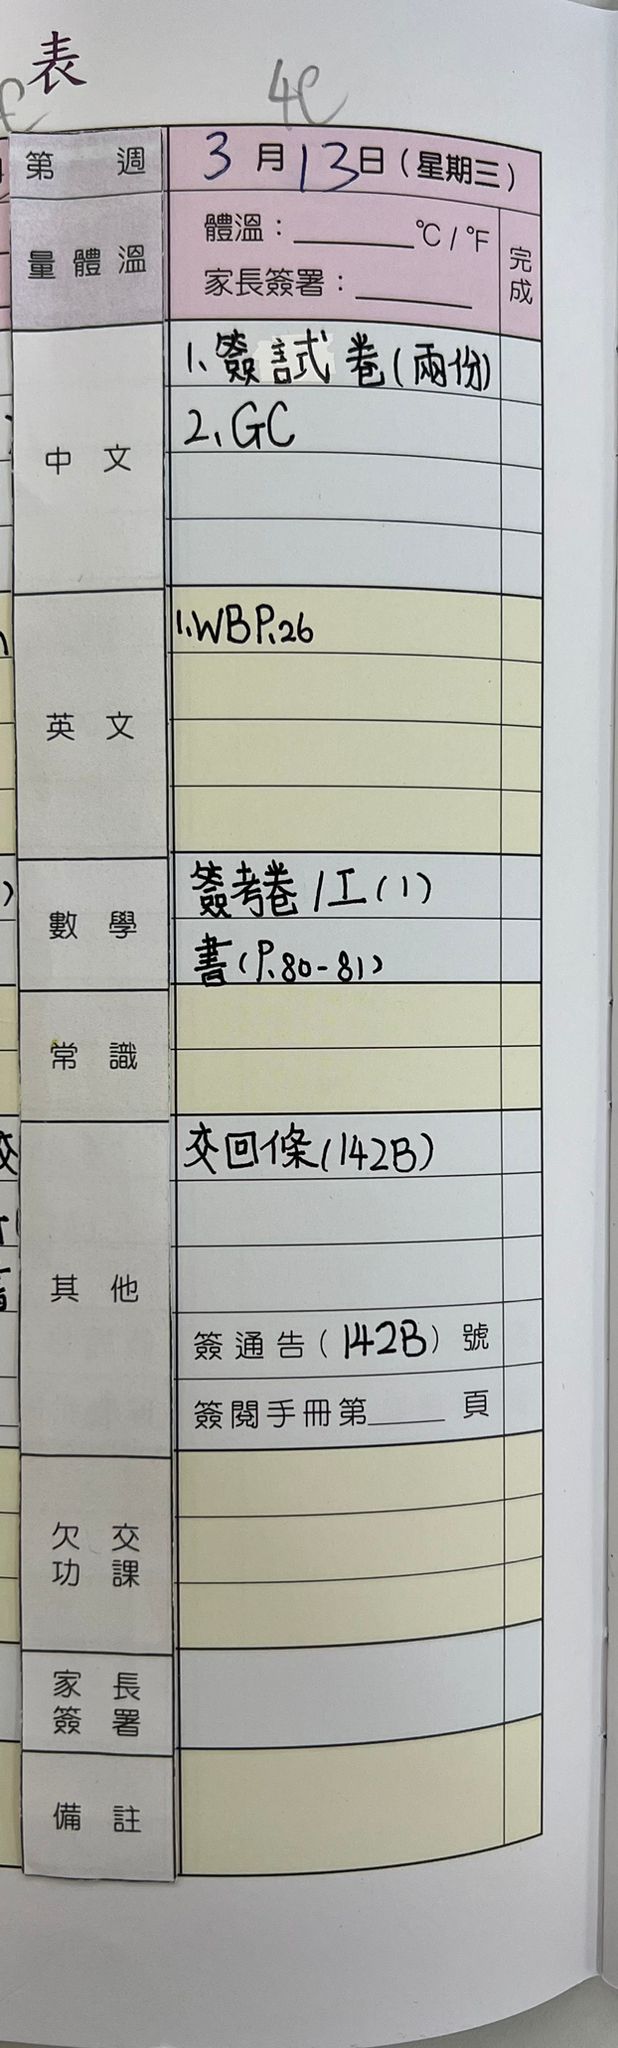 表
4C
第 週
3月13日(星期三)
量體溫
體溫：______℃/℉
家長簽署：______
完成
中文
1.簽試卷(兩份)
2.GC
英文
1.WBP.26
數學
簽考卷/工(1)
書(P.80-81)
常識
其他
交回條(142B)
簽通告(142B)號
簽閱手冊第____頁
欠交功課
家長簽署
備註